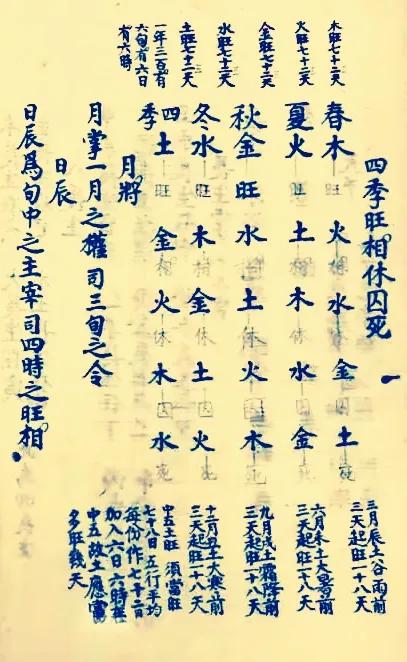 四季旺相休囚死
木旺七十二天
春木旺火相水休金囚土死
三月辰土谷雨前
三天起旺一十八天
火旺七十二天
夏火旺土相木休水囚金死
六月未土大暑前
三天起旺一十八天
金旺七十二天
秋金旺水相土休火囚木死
九月戌土霜降前
三天起旺一十八天
水旺七十二天
冬水旺木相金休土囚火死
十二月丑土大寒前
三天起旺一十八天
土旺七十二天
四季土旺金相火休木囚水死
中五土旺 須當旺
七十八日 五行平均
每份作七十二日
加入六日六時在
中五故土應當
多旺幾天
一年三百有
六旬有六日
有六時
月將
月掌一月之權司三旬之令
日辰
日辰爲旬中之主宰司四時之旺相